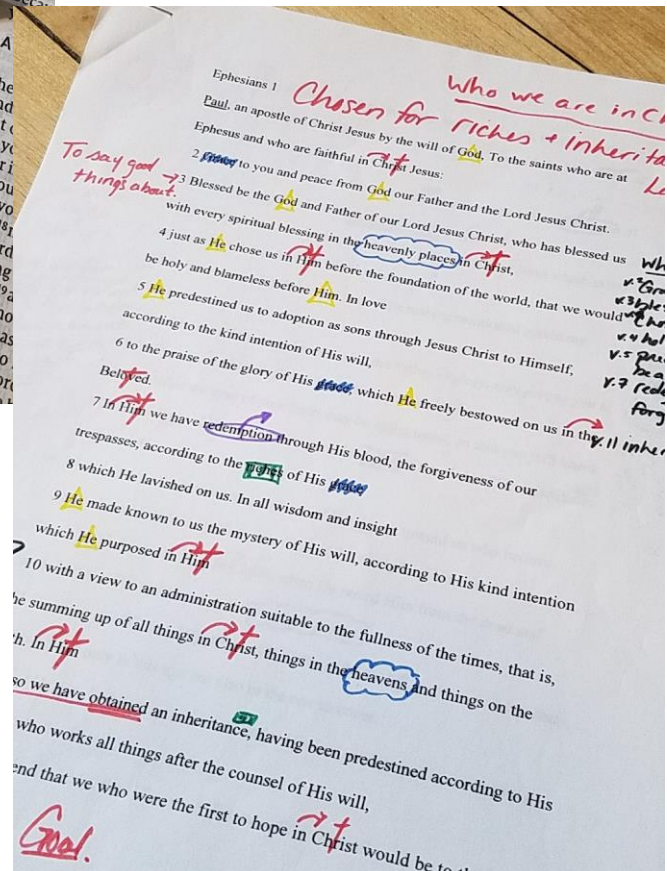 Who we are in C
Ephesians 1
Chosen for riches + inherita
Paul, an apostle of Christ Jesus by the will of God, To the saints who are at
Ephesus and who are faithful in Christ Jesus:
To say good
things about.
2 to you and peace from God our Father and the Lord Jesus Christ.
3 Blessed be the God and Father of our Lord Jesus Christ, who has blessed us
with every spiritual blessing in the heavenly places in Christ,
4 just as He chose us in Him before the foundation of the world, that we would
be holy and blameless before Him. In love
5 He predestined us to adoption as sons through Jesus Christ to Himself,
according to the kind intention of His will,
6 to the praise of the glory of His grace, which He freely bestowed on us in the
Beloved.
7 In Him we have redemption through His blood, the forgiveness of our
trespasses, according to the riches of His grace
8 which He lavished on us. In all wisdom and insight
9 He made known to us the mystery of His will, according to His kind intention
which He purposed in Him
10 with a view to an administration suitable to the fullness of the times, that is,
he summing up of all things in Christ, things in the heavens and things on the
h. In Him
so we have obtained an inheritance, having been predestined according to His
who works all things after the counsel of His will,
end that we who were the first to hope in Christ would be to
Goal.
Wh
v.2 Gra
v.3 bles
v.4 Cho
v.4 hol
v.5 pre
v.7 rede
forg
v.11 inher